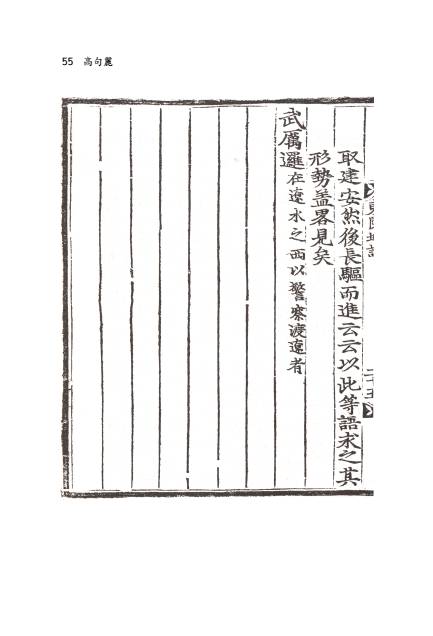 55 高句麗
取建安然後長驅而進云云以此等語求之其
形勢盖畧見矣
武厲邏在遼水之西以警察渡遼者